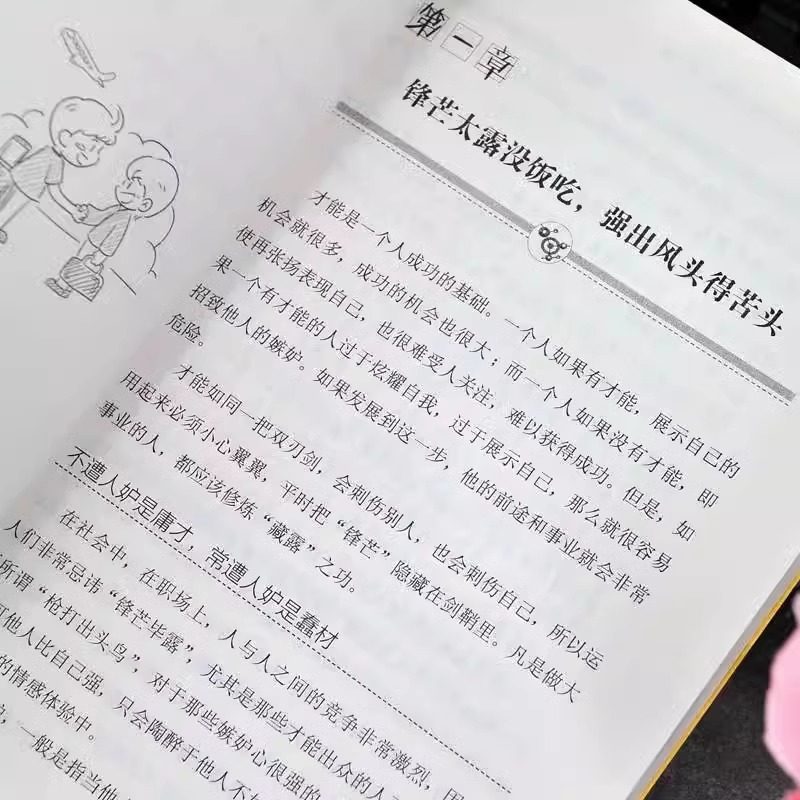 第一章
锋芒太露没饭吃，强出风头得苦头
才能是一个人成功的基础。一个人如果有才能，展示自己的
机会就很多，成功的机会也很大；而一个人如果没有才能，即
使再张扬表现自己，也很难受人关注，难以获得成功。但是，如
果一个有才能的人过于炫耀自我，过于展示自己，那么就很容易
招致他人的嫉妒。如果发展到这一步，他的前途和事业就会非常
危险。
才能如同一把双刃剑，会刺伤别人，也会刺伤自己，所以运
用起来必须小心翼翼，平时把“锋芒”隐藏在剑鞘里。凡是做大
事业的人，都应该修炼“藏露”之功。
不遭人妒是庸才，常遭人妒是蠢材
在社会中，在职场上，人与人之间的竞争非常激烈，因
人们非常忌讳“锋芒毕露”，尤其是那些才能出众的人
所谓“枪打出头鸟”，对于那些嫉妒心很强的
他人比自己强，只会陶醉于他人不
的情感体验中。
一般是指当他